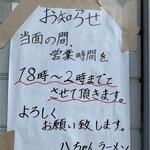 お知らせ
当面の間、
営業時間を
18時〜2時までと
させて頂きます。
よろしく
お願い致します。
八ちゃんラーメン